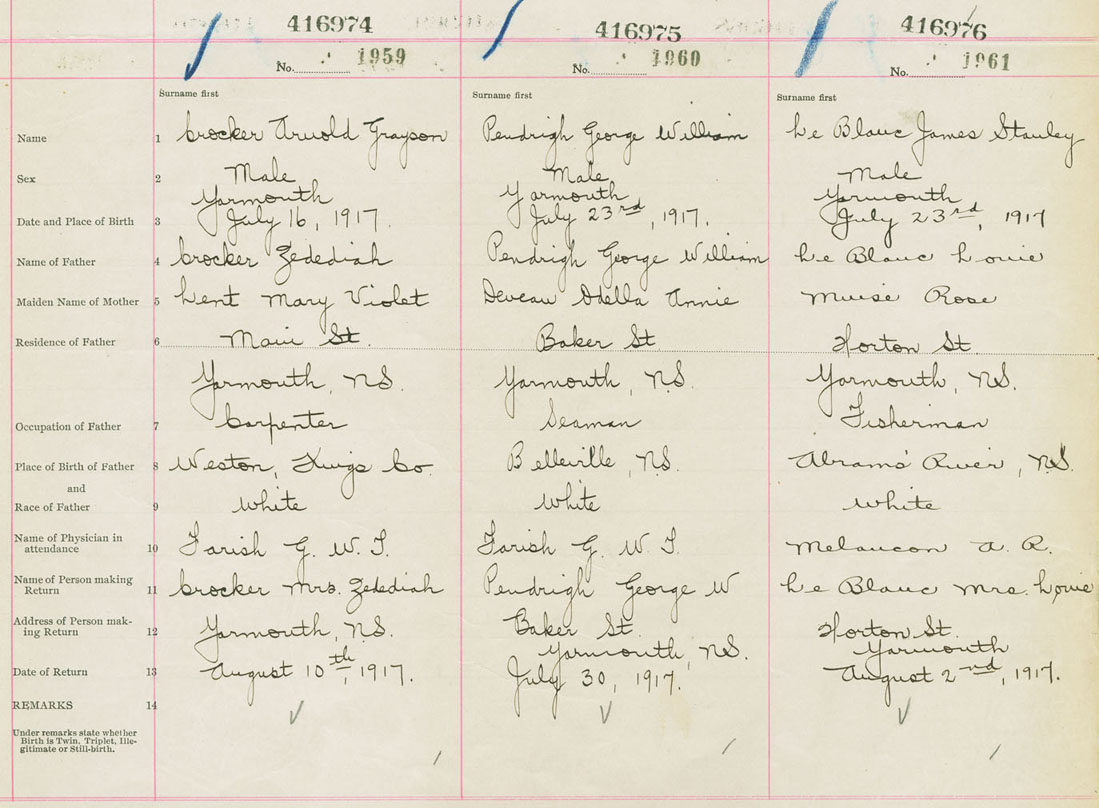 416974 416975 416976
No. 1959 No. 1960 No. 1961
Surname first Surname first Surname first
Name 1 Crocker Arnold Grayson Pendrigh George William Le Blanc James Stanley
Sex 2 Male Male Male
Yarmouth Yarmouth Yarmouth
Date and Place of Birth 3 July 16, 1917. July 23rd, 1917. July 23rd, 1917
Name of Father 4 Crocker Zedediah Pendrigh George William Le Blanc Louie
Maiden Name of Mother 5 Lent Mary Violet Deveau Odella Annie Muise Rose
Residence of Father 6 Main St. Baker St. Horton St
Yarmouth, N.S. Yarmouth, N.S. Yarmouth, N.S.
Occupation of Father 7 Carpenter Seaman Fisherman
Place of Birth of Father 8 Weston, Kings Co. Belleville, N.S. Abrams' River, N.S.
and
Race of Father 9 White White White
Name of Physician in
attendance 10 Farish G. W. T. Farish G. W. T. Melancon A. R.
Name of Person making
Return 11 Crocker Mrs. Zedediah Pendrigh George W Le Blanc Mrs. Louie
Address of Person mak-
ing Return 12 Yarmouth, N.S. Baker St. Horton St.
Yarmouth, N.S. Yarmouth
Date of Return 13 August 10th, 1917. July 30, 1917. August 2nd, 1917.
REMARKS 14
Under remarks state whether
Birth is Twin, Triplet, Ille-
gitimate or Still-birth.